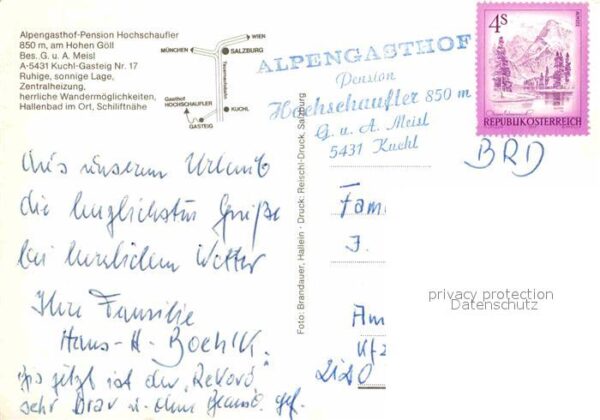 Alpengasthof-Pension Hochschaufler
850 m, am Hohen Göll
Bes. G. u. A. Meisl
A-5431 Kuchl-Gasteig Nr. 17
Ruhige, sonnige Lage,
Zentralheizung,
herrliche Wandermöglichkeiten,
Hallenbad im Ort, Schiliftnähe
WIEN
MÜNCHEN
SALZBURG
Tauernautobahn
Gasthof
HOCHSCHAUFLER
KUCHL
GASTEIG
ALPENGASTHOF
Pension
Hochschaufler 850 m
G. u. A. Meisl
5431 Kuchl
4S
REPUBLIK ÖSTERREICH
BRD
Aus unserem Urlaub
die herzlichsten Grüße
bei herrlichem Wetter
Ihre Familie
Hans-H. Boehlk.
bis jetzt ist der "Rekord
sehr brav u. ohne
Foto: Brandauer, Hallein · Druck: Reischl-Druck, Salzburg
Fam
J.
Am
Kfz
privacy protection
Datenschutz